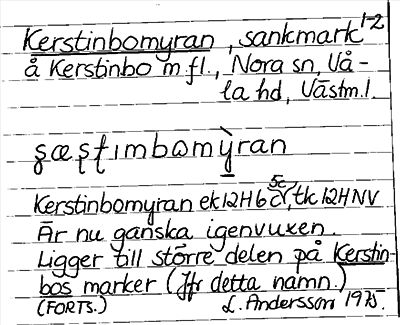 Kerstinbomyran, sankmark 1-2
å Kerstinbo m fl., Nora sn, Vå-
la hd, Västm. l.
şœşţımbωmỳran
Kerstinbomyran ek 12H6c, tk 12HNV
5c
Är nu ganska igenvuxen.
Ligger till större delen på Kerstin-
bos marker (Jfr detta namn.)
(FORTS.) L. Andersson 1975.